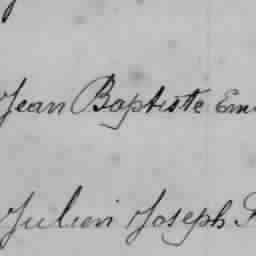 Jean Baptiste Em
Julien Joseph